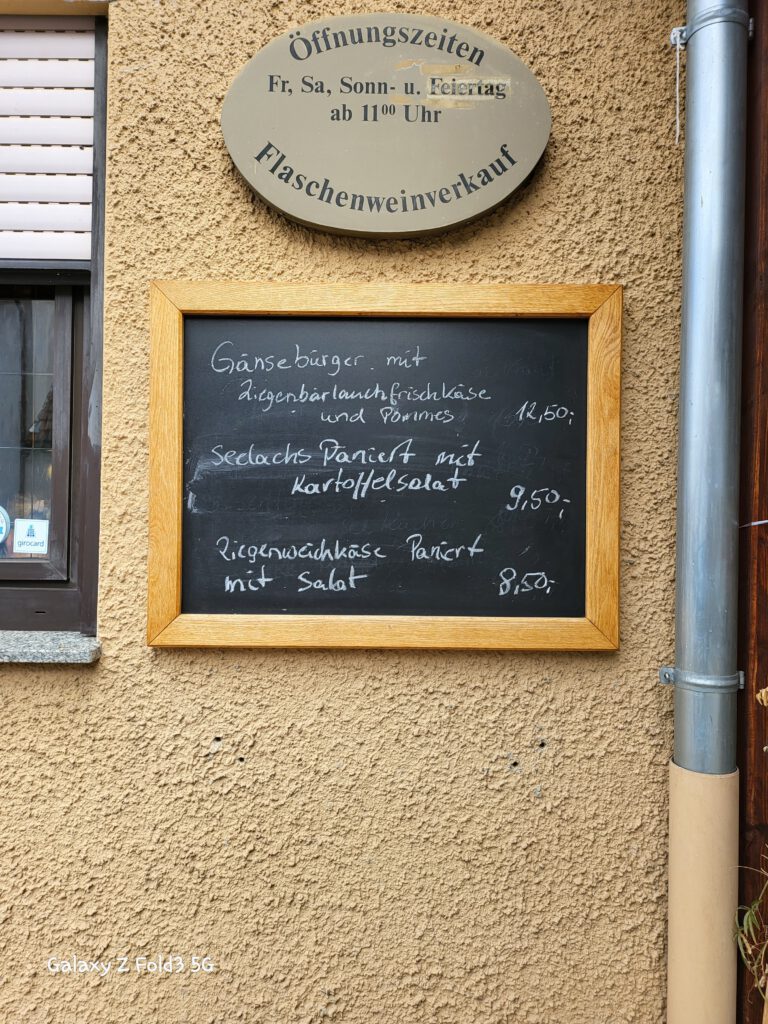 Öffnungszeiten
Fr, Sa, Sonn- u. Feiertag
ab 11⁰⁰ Uhr
Flaschenweinverkauf
Gänsebürger mit
Ziegenbärlauchfrischkäse
und Pommes 12,50,-
Seelachs Paniert mit
Kartoffelsalat
9,50,-
Ziegenweichkäse Paniert
mit Salat 8,50,-
girocard
Galaxy Z Fold3 5G